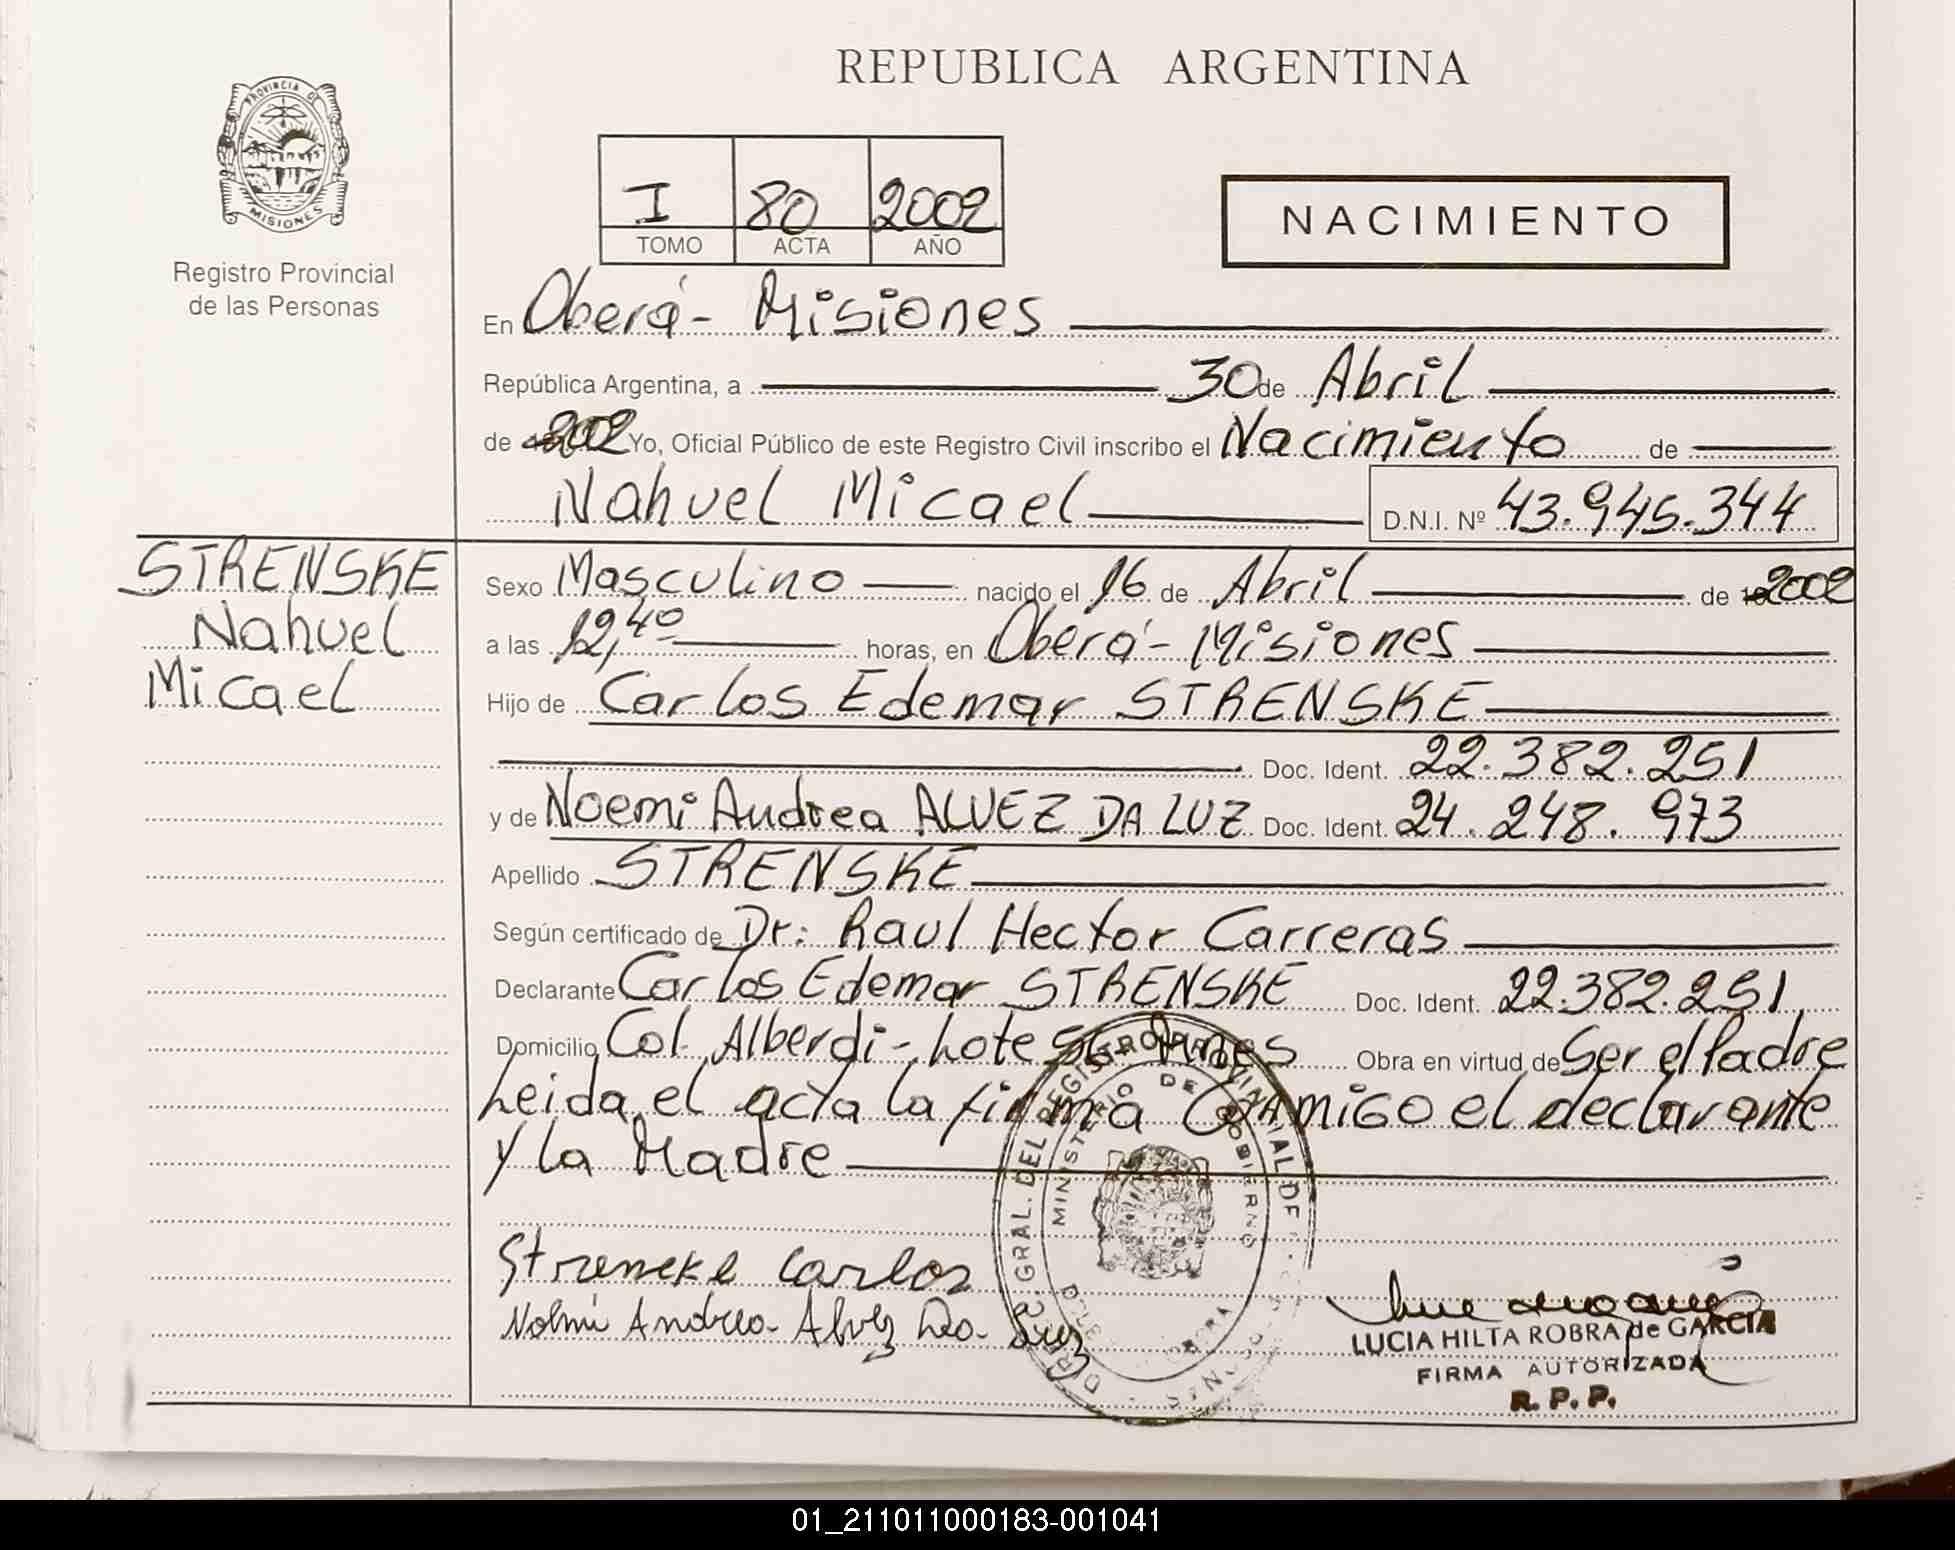 REPUBLICA ARGENTINA
PROVINCIA DE
MISIONES
Registro Provincial
de las Personas
I 80 2002
TOMO ACTA AÑO
NACIMIENTO
En Oberá - Misiones
República Argentina, a 30 de Abril
de 2002 Yo, Oficial Público de este Registro Civil inscribo el Nacimiento de
Nahuel Micael D.N.I. Nº 43.945.344
STRENSKE
Nahuel
Micael
Sexo Masculino nacido el 16 de Abril de 2002
a las 12,40 horas, en Oberá - Misiones
Hijo de Carlos Edemar STRENSKE
Doc. Ident. 22.382.251
y de Noemi Andrea ALVEZ DA LUZ Doc. Ident. 24.248.973
Apellido STRENSKE
Según certificado de Dr: Raul Hector Carreras
Declarante Carlos Edemar STRENSKE Doc. Ident. 22.382.251
Domicilio Col. Alberdi - Lote Obra en virtud de Ser el Padre
Leida el acta la firma el declarante
y la Madre
Strenske Carlos
Noemi Andrea Alvez Da Luz
MINISTERIO DE GOBIERNO
LUCIA HILTA ROBRA de GARCIA
FIRMA AUTORIZADA
R. P. P.
01_211011000183-001041